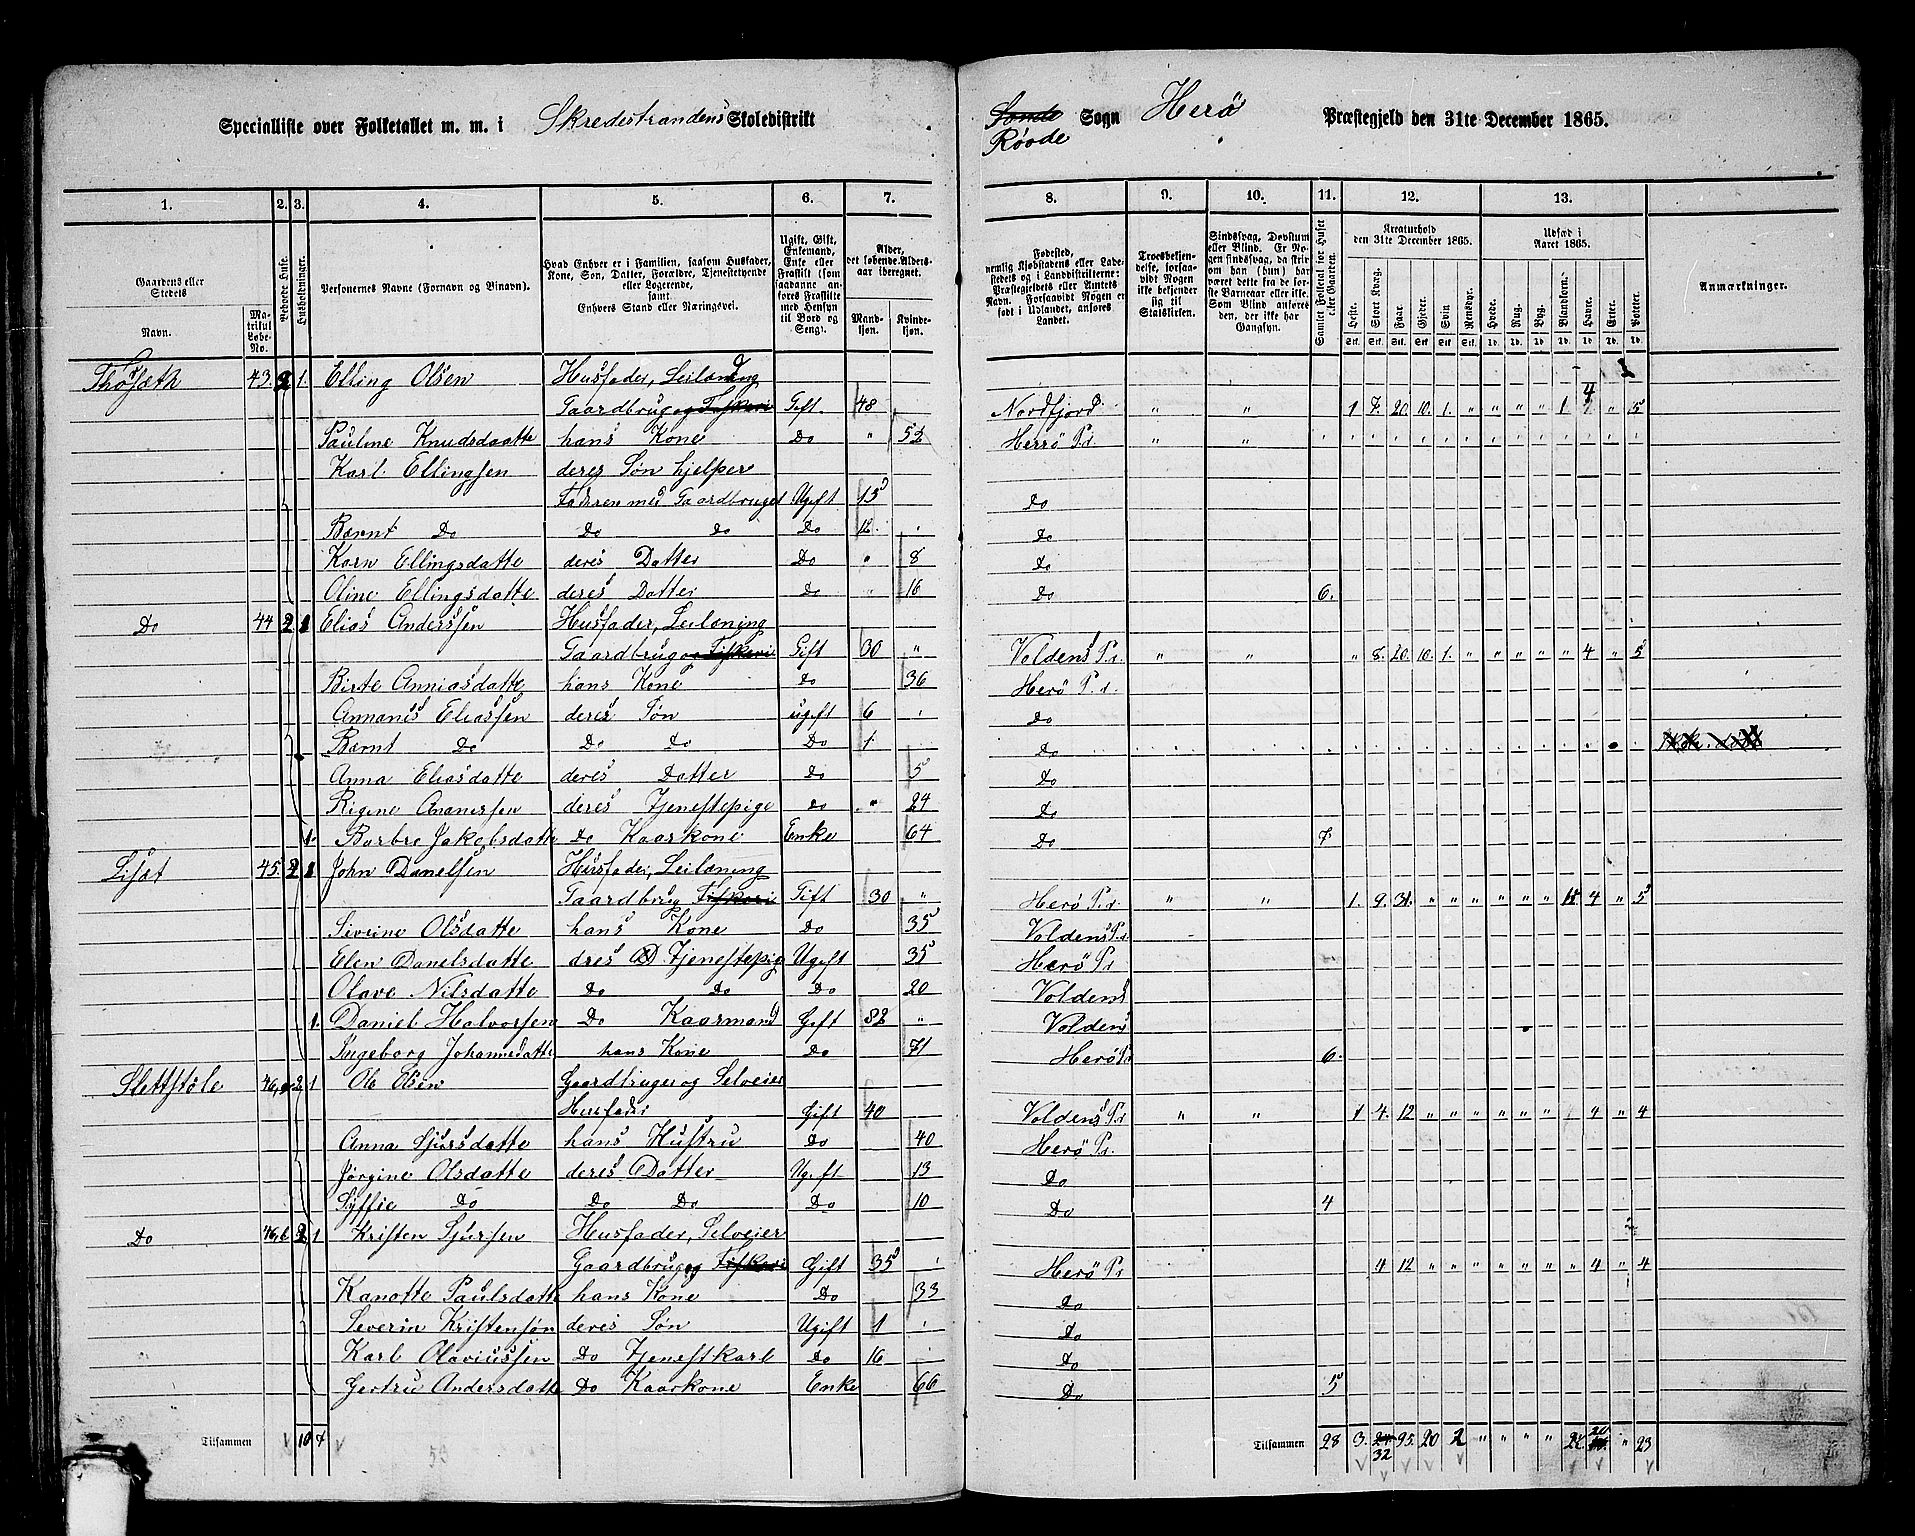 Specialliste over Folketallet m. m. i Skredestrandens Skoledistrikt
Sande Sogn Herö Præstegjeld den 31te December 1865.
Röode
1. 2. 3. 4. 5. 6. 7. 8. 9. 10. 11. 12. 13.
Gaardens eller Stedets
Navn.
Matrikul Løbe-No.
Beboede Huse.
Husholdninger.
Personernes Navne (Fornavn og Binavn).
Hvad Enhver er i Familien, saasom Husfader, Kone, Søn, Datter, Forældre, Tjenestetyende eller Logerende, samt Enhvers Stand eller Næringsvei.
Ugift, Gift, Enkemand, Enke eller Fraskilt (som saadanne anføres Fraskilte med Hensyn til Bord og Seng).
Alder, det løbende Aldersaar iberegnet.
Mandkjøn. Kvindekjøn.
Fødested, nemlig Kjøbstadens eller Ladestedets og i Landdistrikterne: Præstegjeldets eller Amtets Navn. Forsaavidt Nogen er født i Udlandet, anføres Landet.
Troesbekjendelse, forsaavidt Nogen ikke bekjender sig til Statskirken.
Sindssvag, Døvstum eller Blind. Er Nogen sindssvag, da skrives om han (hun) har været dette fra de første Barneaar eller ikke. Som Blind anføres den, der ikke har Gangsyn.
Samlet Folketal for Huset eller Gaarden.
Kreaturhold den 31te December 1865.
Heste. Stort Kvæg. Faar. Gjeder. Svin. Rensdyr.
Udsæd i Aaret 1865.
Hvede. Rug. Byg. Blandkorn. Havre. Erter. Poteter.
Anmærkninger.
Thösæth 43. 2 1. Elling Olsen Husfader, Leilænding
Gaardbrug og Fiskeri Gift 48 Nordfjord " " 1 7. 20. 10. 1. " " " " 1 4 " 5
Pauline Knudsdatte hans Kone Do " 52 Herrö Pr. " "
Karl Ellingsen deres Søn hjelper
Faderen med Gaardbruget Ugift 15 Do
Bærnt Do Do Do Do 12. Do
Karn Ellingsdatte deres Datter Do " 8 Do
Oline Ellingsdatte deres Datter Do " 16 Do 6.
Do 44 2 1 Elias Anderssen Husfader, Leilæning
Gaardbrug og Fiskeri Gift 30 " Voldens Pr. " " " 8. 20. 10. 1. " " " " " 4 " 5
Birte Anniasdatte hans Kone Do 36 Herö Pr.
Annanis Eliassen deres Søn ugift 6 Do
Bærnt Do Do Do Do 1 Do
Anna Eliasdatte deres Datter Do 5 Do
Rigine Ananissen deres Tjenestepige do " 24 Do
1. Barbro Jakobsdatte Do Kaarkone Enke 64 Do 7
Lisæt 45. 2 1 John Danelsen Husfader, Leilæning
Gaardbrug Fiskeri Gift 30 " Herö Pr. " " 1. 9. 31. " " " " " " 4 " 5
Siverine Olsdatte hans Kone Do 35 Voldens Pr.
Elen Danelsdatte dres Tjenestepig Ugift 35 Herö Pr
Olave Nilsdatte Do Do Do 20 Voldens
1. Daniel Halvorsen Do Kaarmand Gift 82 " Voldens
Ingeborg Johannesdatte hans Kone Do 71 Herö Pr 6.
Slettstöle 46, a 2 1 Ole Olsen Gaardbruger og Selveier
Husfader Gift 40 Voldens Pr " " 1 4. 12 " " " " " " 4 " 4
Anna Sjursdatte hans Hustru Do 40 Herö Pr.
Jörgine Olsdatte deres Datter Ugift 13 Do
Syffie Do Do Do Do 10 Do 4
Do 46, b. 2 1 Kristen Sjursen Husfader, Selveier
Gaardbrug og Fiskeri Gift 35 Herö Pr 4 12 " " " " " " " 4 " 4
Kanotte Paulsdatte hans Kone Do 33 Do
Severin Kristensön deres Søn Ugift 1 Do
Karl Olaviussen Do Tjenestkarl Do 16 Do
Gertru Andersdatte Do Kaarkone Enke 66 Do 5
Tilsammen 10 7
Tilsammen 28 3. 32 95. 20 2 " " " " 20 " 23